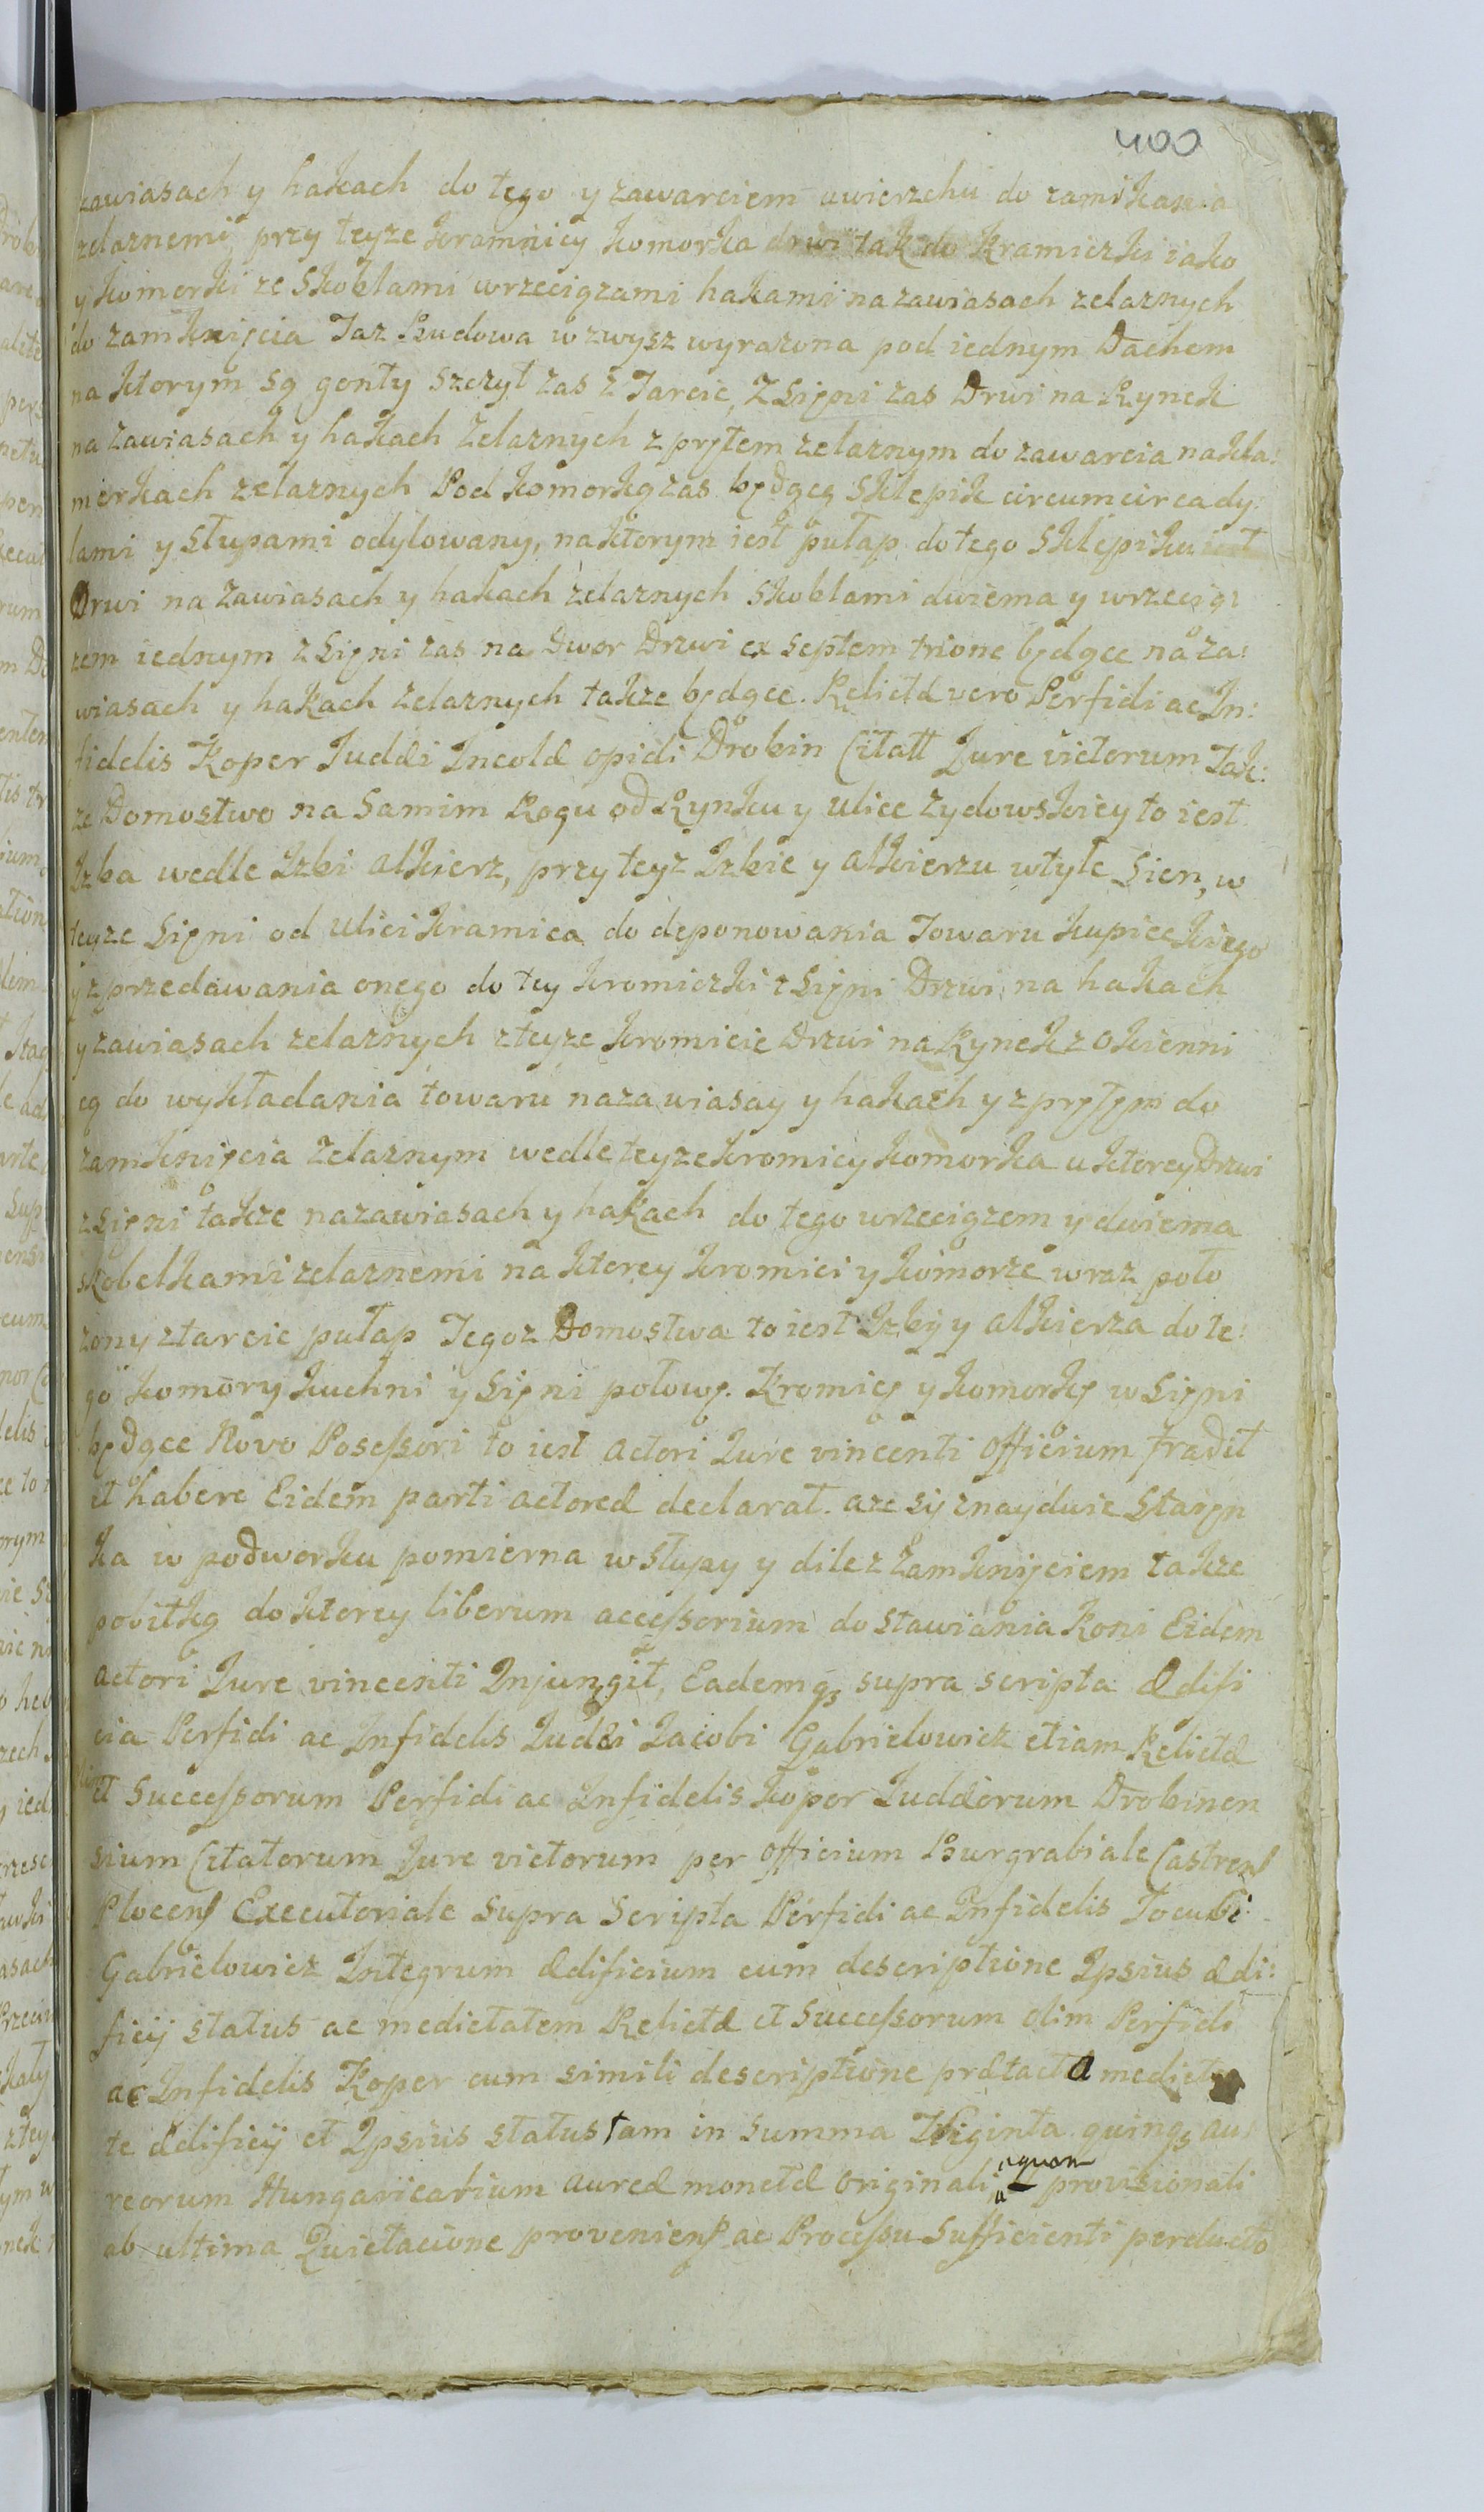 400
zawiasach y hakach do tego y zawarciem uwierzchu do zamikania
zelaznemi przy teyze kramnicy komorka drwi tak do Kramiczki iako
y komorki ze skoblami wrzeciązami hakami na zawiasach zelaznych
do zamknięcia Taz Budowa wzwysz wyrazona pod iednym Dachem
na ktorym są gonty szczyt zas z Tarcic, Z Sięni zas Drwi na Rynek
na zawiasach y hakach zelaznych z prętem zelaznym do zawarcia na kla:
merkach zelaznych Pod komorką zas będącą Sklepik circumcirca dy:
lami y słupami odylowany, na ktorym iest pułap do tego Sklepiku iest
Drwi na zawiasach y hakach zelaznych skoblami dwiema y wrzecią
zem iednym z Sięni zas na Dwor Drzwi ex septem trione będące na za:
wiasach y hakach zelaznych takze będące. Relictæ vero Perfidi ac In:
fidelis Koper Judæi Incolæ opidi Drobin Citatt Jure victorum Tak:
ze Domostwo na Samim Rogu od Rynku y ulice zydowskiey to iest
Izba wedle Izbi alkierz, przy teyz Izbie y alkierzu w tyle Sien, w
teyze Sięni od ulici kramica do deponowania Towaru kupieckiego
y z przedawania onego do tey kromiczki z Sięni Drzwi na hakach
y zawiasach zelaznych z teyze kromicie Drzwi na Rynek z okienni
cą do wykładania towaru na zawiasay y hakach y z prętęm do
zamknięcia zelaznym wedle teyze kromicy komorka u ktorey Drzwi
z Sięni takze na zawiasach y hakach do tego wrzeciązem y dwiema
skobelkami zelaznemi na ktorey kromici y komorze wraz poło
zony z tarcic pułap Tegoz Domostwa to iest Izby y alkierza do te:
go komory kuchni y Sięni połowę. Kromicę y komorkę w Sięni
będące Novo Posessori to iest actori Jure vincenti officium tradit
et habere Eidem parti actoreæ declarat. aze się znayduie Staięn
ka w podworku pomierna w słupy y dile z zamknięciem takze
pobitką do ktorey liberum accessorium do stawiania Koni Eidem
actori Jure vincenti Injungit, Eademqꝫ supra scripta ædifi
cia Perfidi ac Infidelis Judæi Jacobi Gabrielowicz etiam Relictæ
et Successorum Perfidi ac Infidelis Koper Judæorum Drobinen
sium Citatorum Jure victorum per officium Burgrabiale Castrens
Plocens Executoriale Supra Scripta Perfidi ac Infidelis Jocubi
Gabrielowicz Integrum ædificium cum descriptione Ipsius ædi:
ficij status ac medietatem Relictæ et Successorum olim Perfidi
ac Infidelis Koper cum simili descriptione prætactæ medieta
te ædificij et Ipsius status tam in Summa Triginta quinqꝫ au:
reorum Hungaricalium aureæ monetæ originali, quam provisionali
ab ultima Quietacione proveniens ac Processu Sufficienti perducto